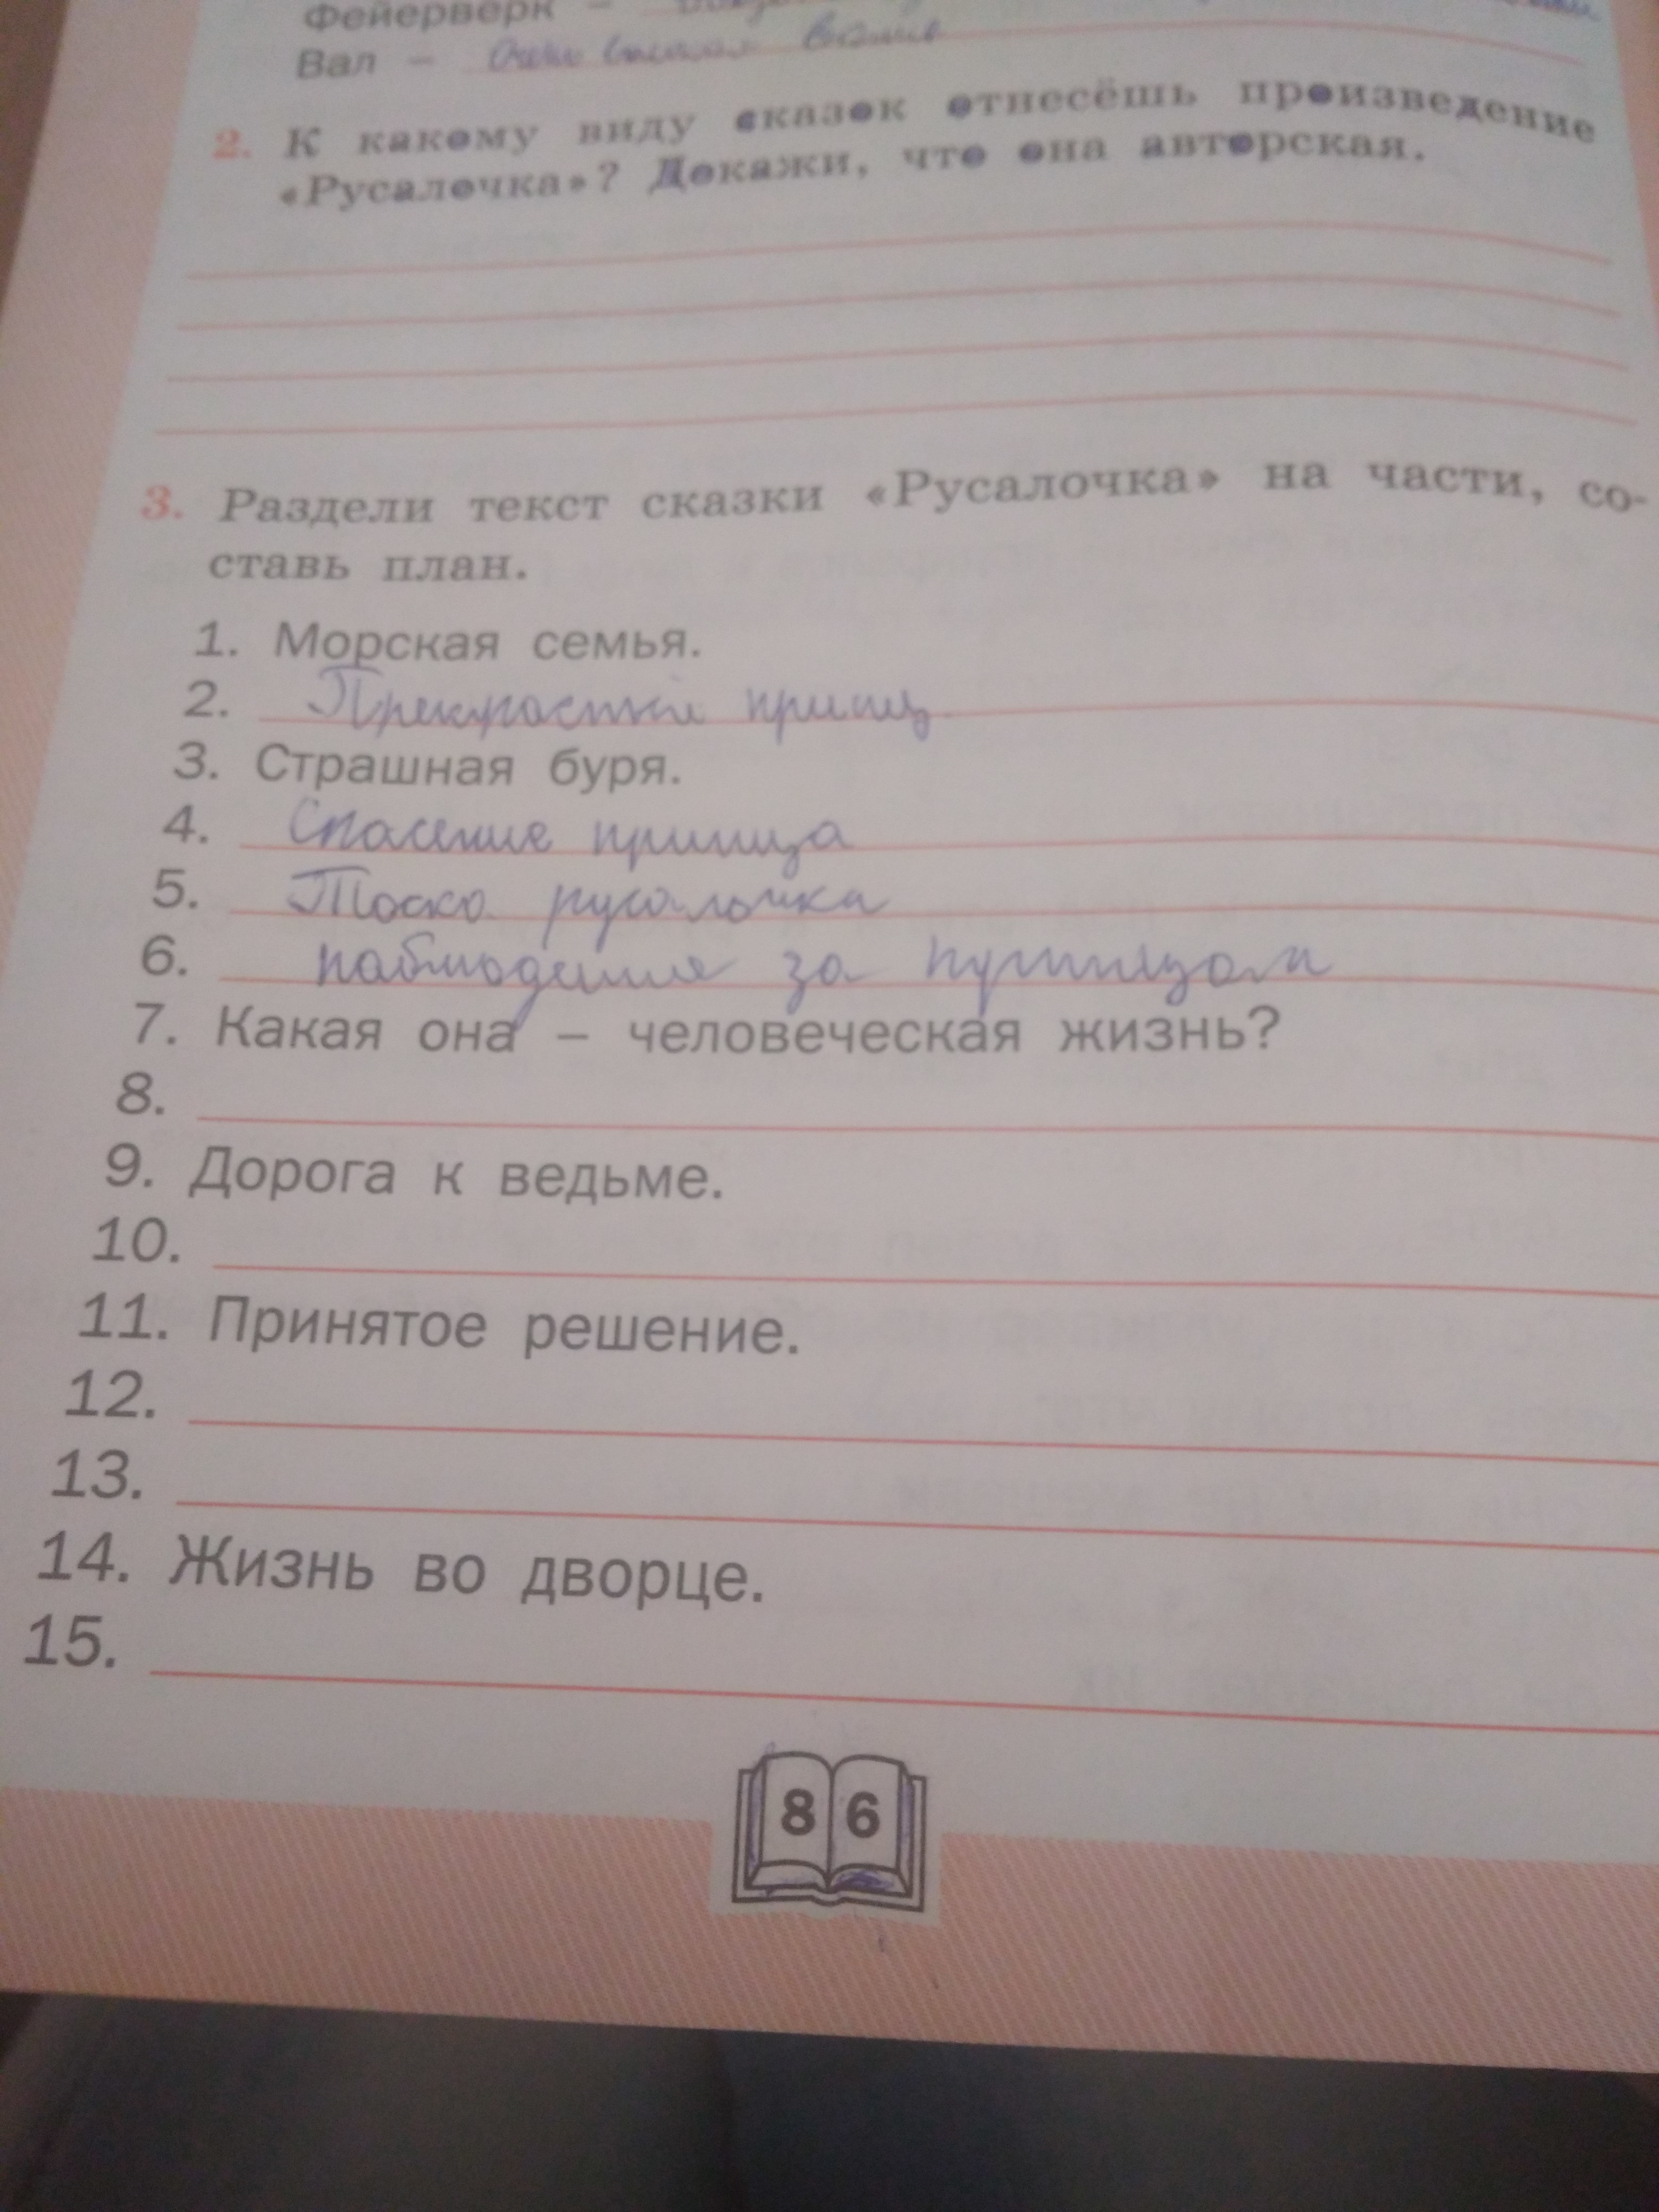 Фейерверк –
Вал –
2. К какому виду сказок отнесёшь произведение
«Русалочка»? Докажи, что она авторская.
3. Раздели текст сказки «Русалочка» на части, со-
ставь план.
1. Морская семья.
2. Прекрасный принц
3. Страшная буря.
4. Спасение принца
5. Тоска русалочка
6. наблюдение за принцом
7. Какая она – человеческая жизнь?
8.
9. Дорога к ведьме.
10.
11. Принятое решение.
12.
13.
14. Жизнь во дворце.
15.
86